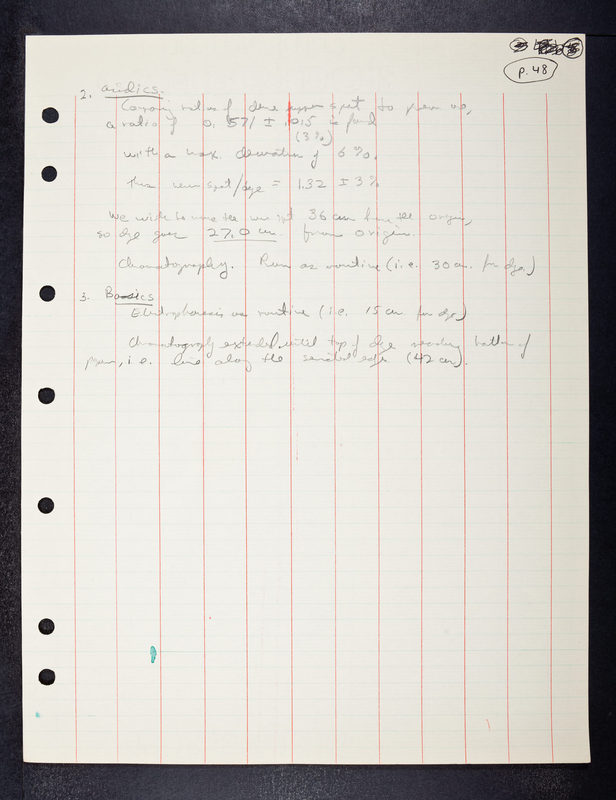 p. 48
2. Acidics.
Comparing ratio of dene spot to
a ratio of 0.571 ± .015 is found
(3%)
with a max. deviation of 6%.
Thus spot/dye = 1.32 ± 3%
We wish to have the spot 36 cm from the origin,
so dye goes 27.0 cm from origin.
Chromatography. Run as routine (i.e. 30 cm. for dye.)
3. Basics
Electrophoresis as routine (i.e. 15 cm for dye)
Chromatography extended until top of dye reaches bottom of
paper, i.e. line along the serrated edge (42 cm).